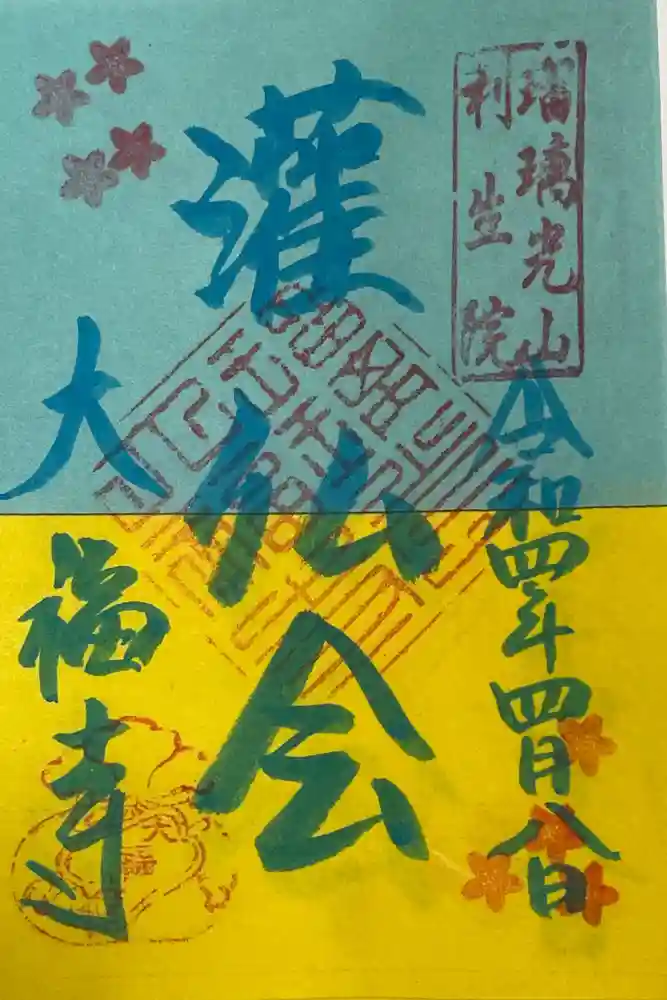 瑠璃光山
利生院
令和四年四月八日
灌仏会
大福寺